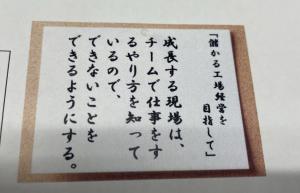 「儲かる工場経営を
目指して」
成長する現場は、
チームで仕事をす
るやり方を知って
いるので、
できないことを
できるようにする。